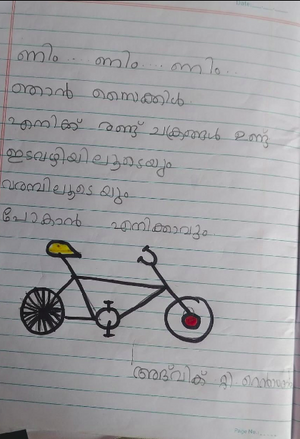 ണിം.. ണിം... ണിം...
ഞാൻ സൈക്കിൾ
എനിക്ക് രണ്ട് ചക്രങ്ങൾ ഉണ്ട്
ഇടവഴിയിലൂടെയും
വരമ്പിലൂടെയും
പോകാൻ എനിക്കാവും
അദ്വിക് റ്റി